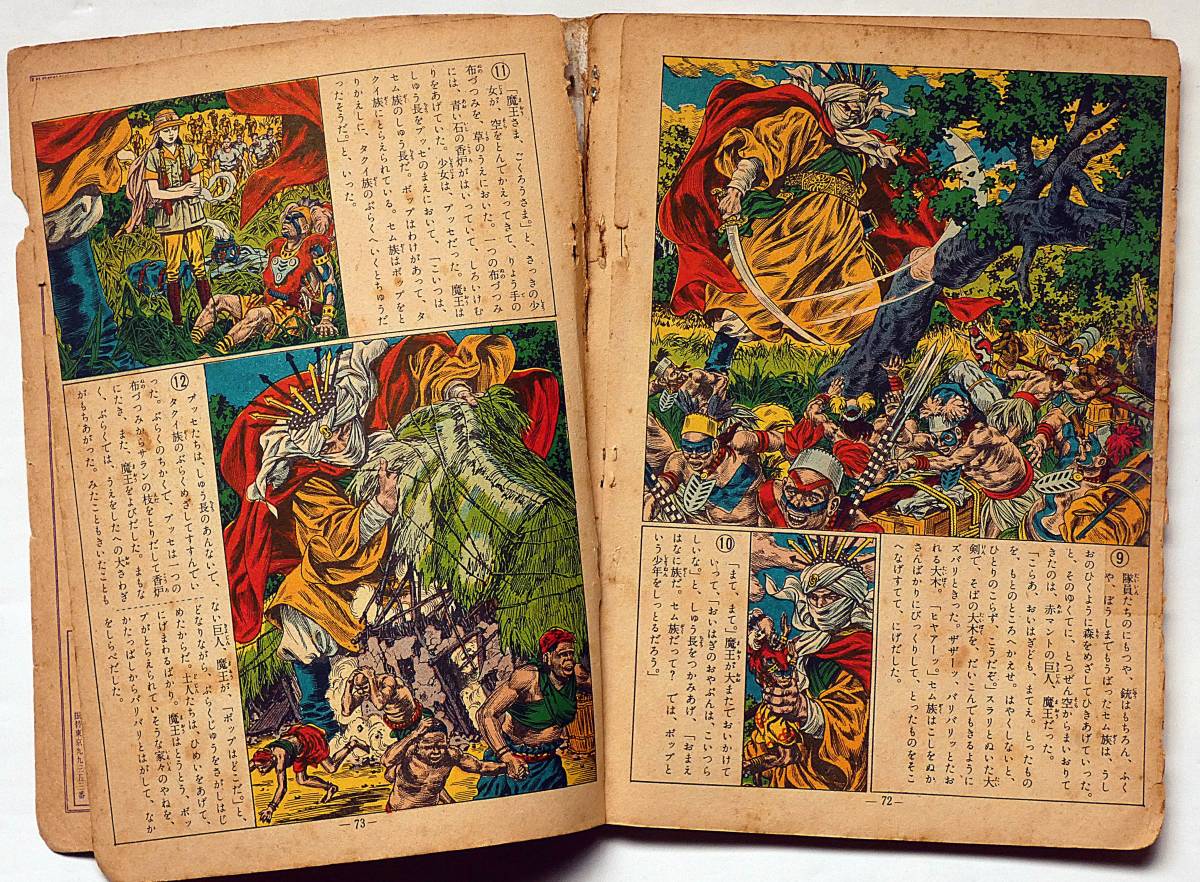 ⑨
隊員たちのにもつや、銃はもちろん、ふく
や、ぼうしまでもうばったセム族は、うし
おのひくように森をめざしてひきあげていった。
と、そのゆくてに、とつぜん空からまいおりて
きたのは、赤マントの巨人、魔王だった。
「こらあ、おいはぎども、まてえ。とったもの
を、もとのところへかえせ。はやくしないと、
ひとりのこらず、こうだぞ。」スラリとぬいた大
剣で、そばの大木を、だいこんでもきるように
ズバリときった。ザザーッ、バリバリッとたお
れる大木。「ヒャアーッ。」セム族はこしをぬか
さんばかりにびっくりして、とったものをそこ
へなげすてて、にげだした。
⑩
「まて、まて。」魔王が大またでおいかけて
いって、「おいはぎのおやぶんは、こいつら
しいな。」と、しゅう長をつかみあげ、「おまえ
はなに族だ。セム族だって？では、ポップと
いう少年をしっとるだろう。」
―72―
⑪
「魔王さま、ごくろうさま。」と、さっきの少
女が、空をとんでかえってきて、りょう手の
布づつみを、草のうえにおいた。一つの布づつみ
には、青い石の香炉がはいっていて、しろいけむ
りをあげていた。少女は、プッセだった。魔王は
しゅう長をプッセのまえにおいて、「こいつは、
セム族のしゅう長だ。ポップはわけがあって、タ
クイ族にとらえられている。セム族はポップをと
りかえしに、タクイ族のぶらくへいくとちゅうだ
ったそうだ。」と、いった。
⑫
プッセたちは、しゅう長のあんないで、
タクイ族のぶらくめざしてすすんでい
った。ぶらくのちかくで、プッセは一つの
布づつみからサランの枝をとりだして香炉
にたき、また、魔王をよびだした。まもな
く、ぶらくでは、うえをしたへの大さわぎ
がもちあがった。みたこともきいたことも
ない巨人、魔王が、「ポップはどこだ。」と、
どなりながら、ぶらくじゅうをさがしはじ
めたからだ。土人たちは、ひめいをあげて、
にげまわるばかり。魔王はとうとう、ポッ
プがとらえられていそうな家々のやねを、
かたっぱしからバリバリとはがして、なか
をしらべだした。
―73―